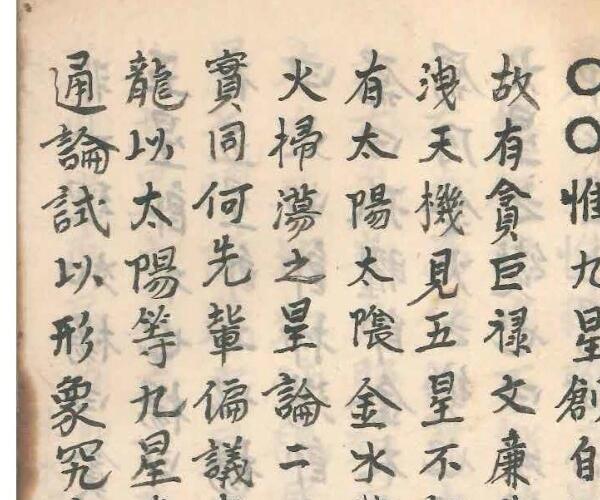 〇〇惟九星創自
故有貪巨禄文廉
洩天機見五星不
有太陽太陰金水
火掃蕩之星論二
實同何先輩偏議
龍以太陽等九星
通論試以形象究